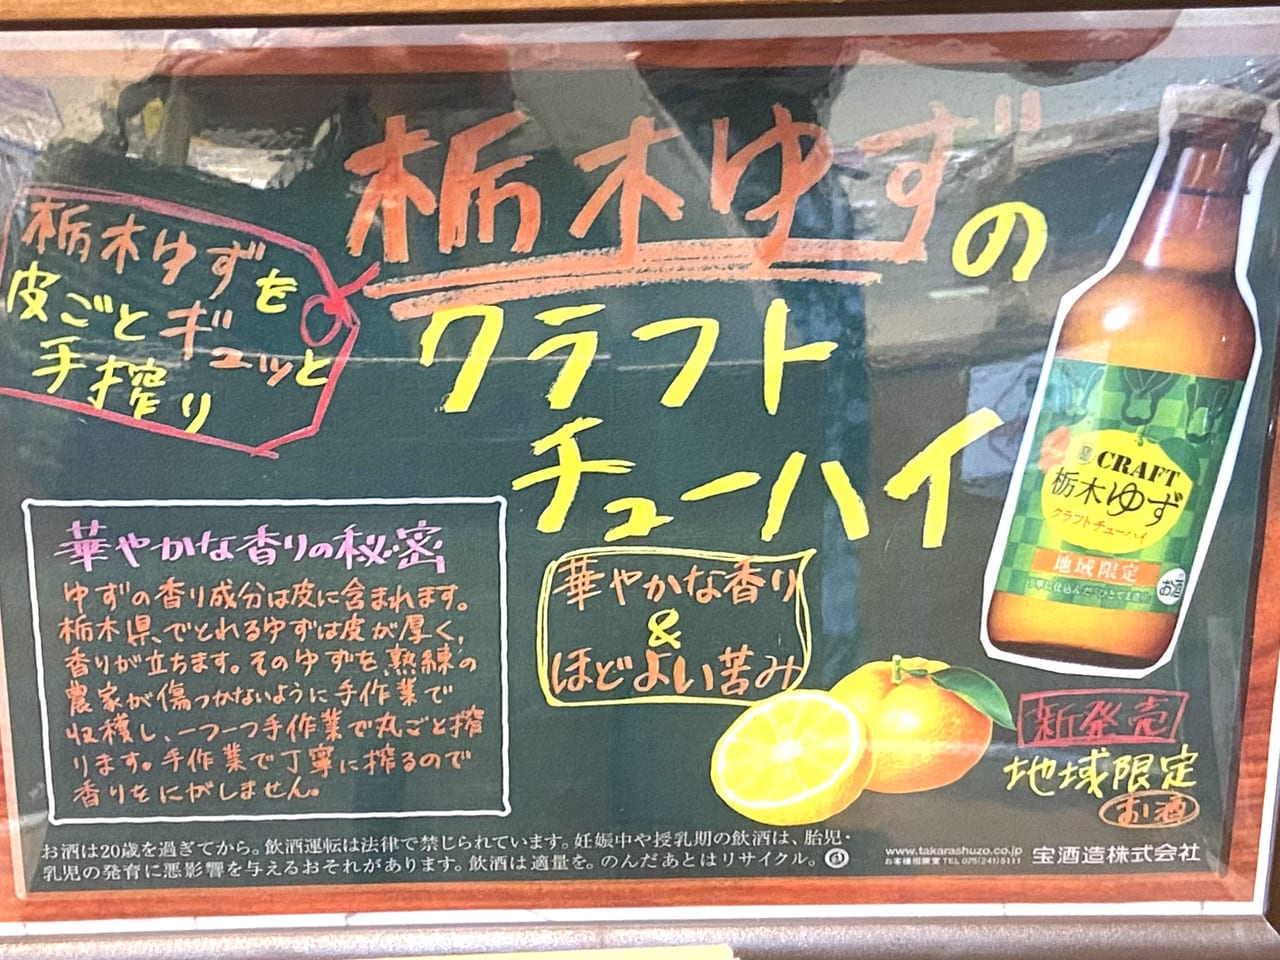 栃木ゆずの
クラフト
チューハイ
栃木ゆずを
皮ごとギュッと
手搾り
華やかな香りの秘密
ゆずの香り成分は皮に含まれます。
栃木県でとれるゆずは皮が厚く、
香りが立ちます。そのゆずを熟練の
農家が傷つかないように手作業で
収穫し、一つ一つ手作業で丸ごと搾
ります。手作業で丁寧に搾るので
香りをにがしません。
華やかな香り
&
ほどよい苦み
CRAFT
栃木ゆず
クラフトチューハイ
地域限定
お酒
新発売
地域限定
お酒
お酒は20歳を過ぎてから。飲酒運転は法律で禁じられています。妊娠中や授乳期の飲酒は、胎児・
乳児の発育に悪影響を与えるおそれがあります。飲酒は適量を。のんだあとはリサイクル。
www.takarashuzo.co.jp
お客様相談室 TEL 075(241)5111
宝酒造株式会社